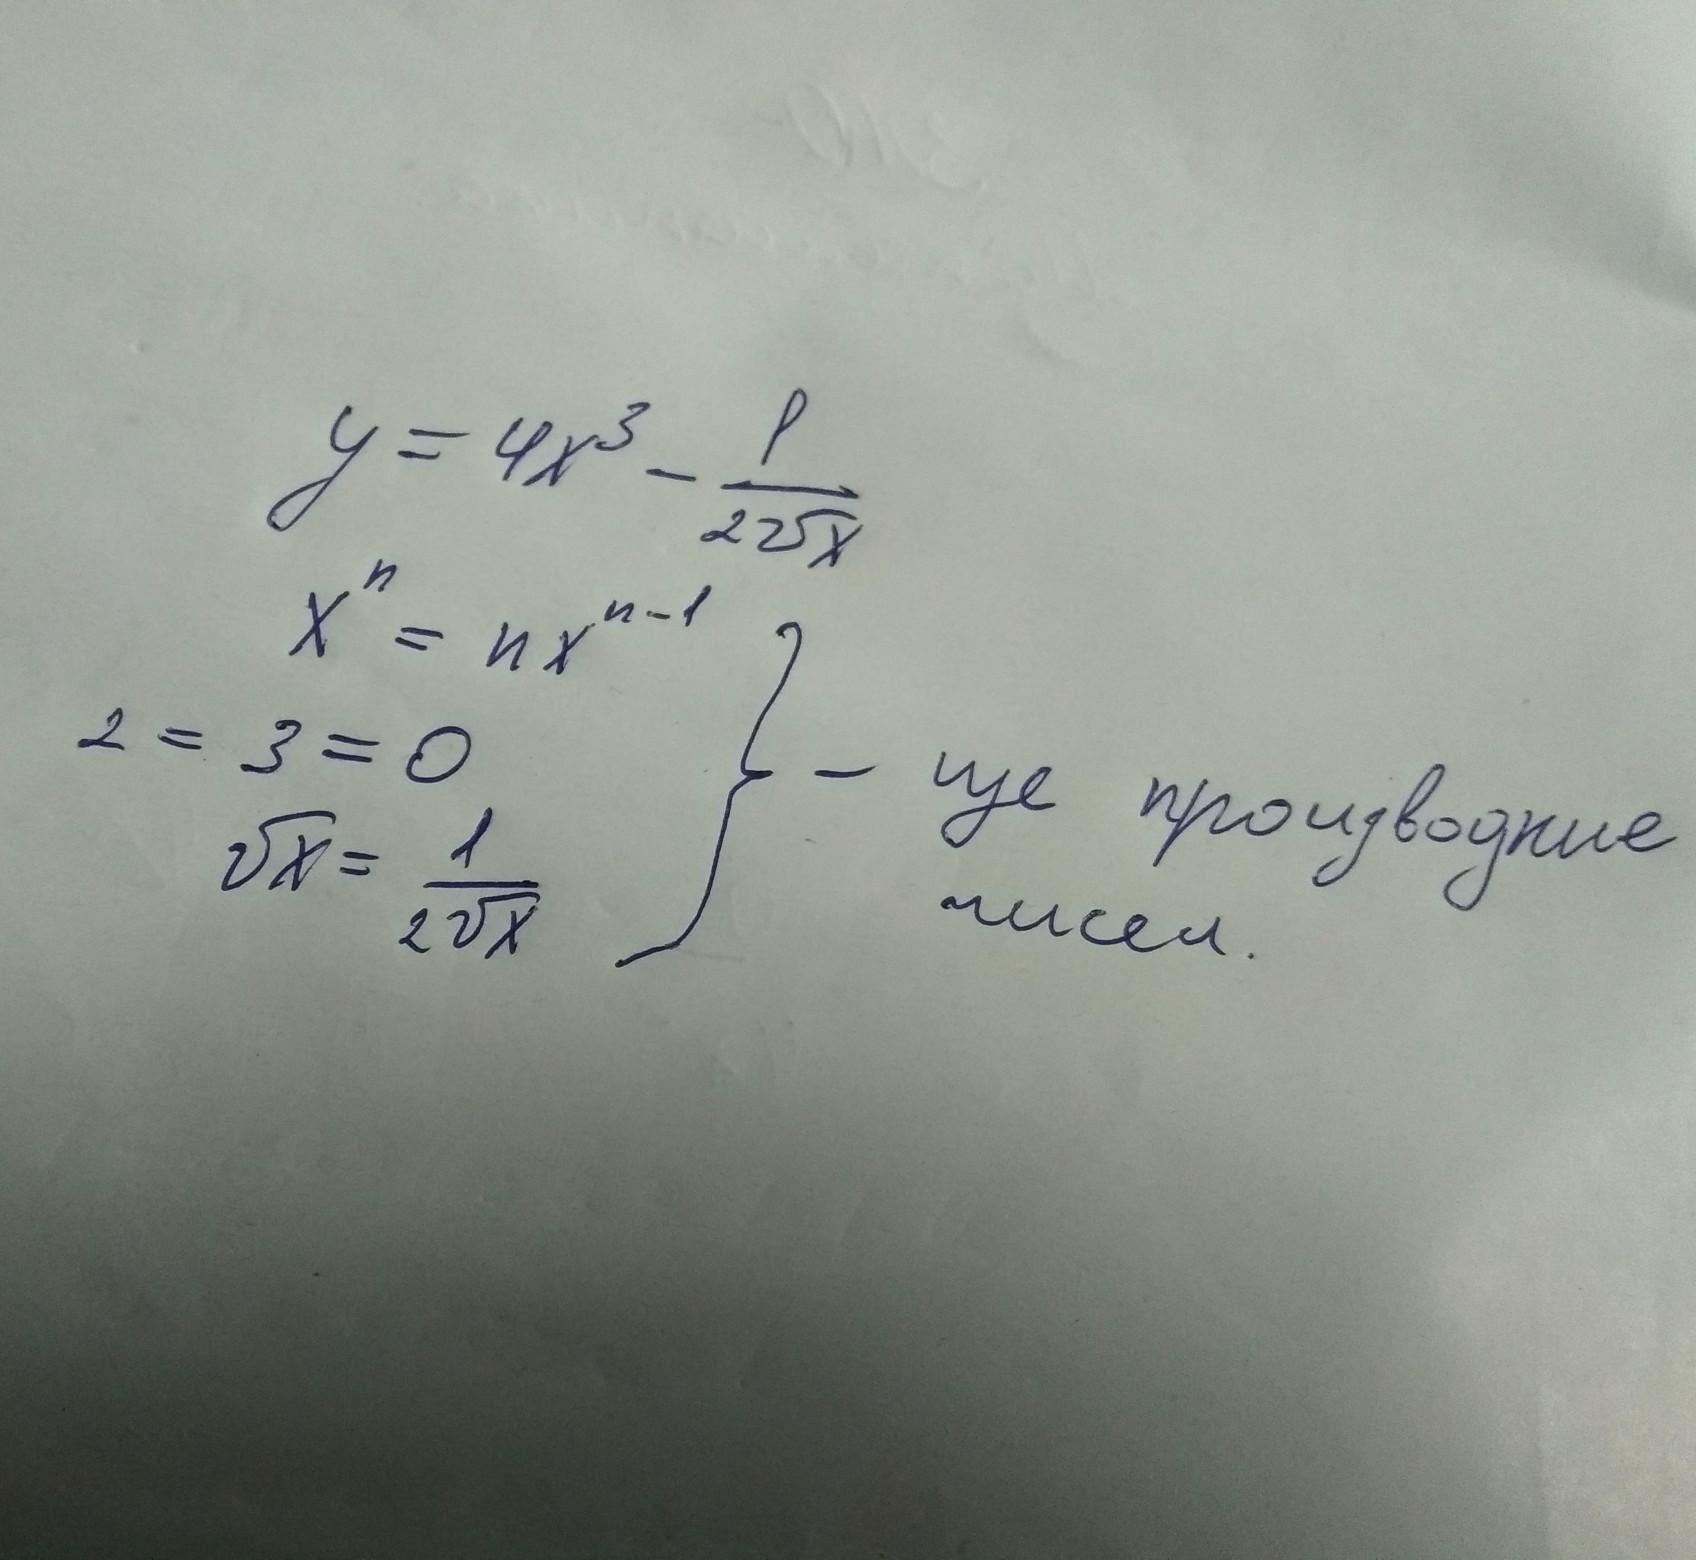 y = 4x³ - 1/(2√x)
xⁿ = nxⁿ⁻¹
2 = 3 = 0
√x = 1/(2√x)
} - це производние
чисел.